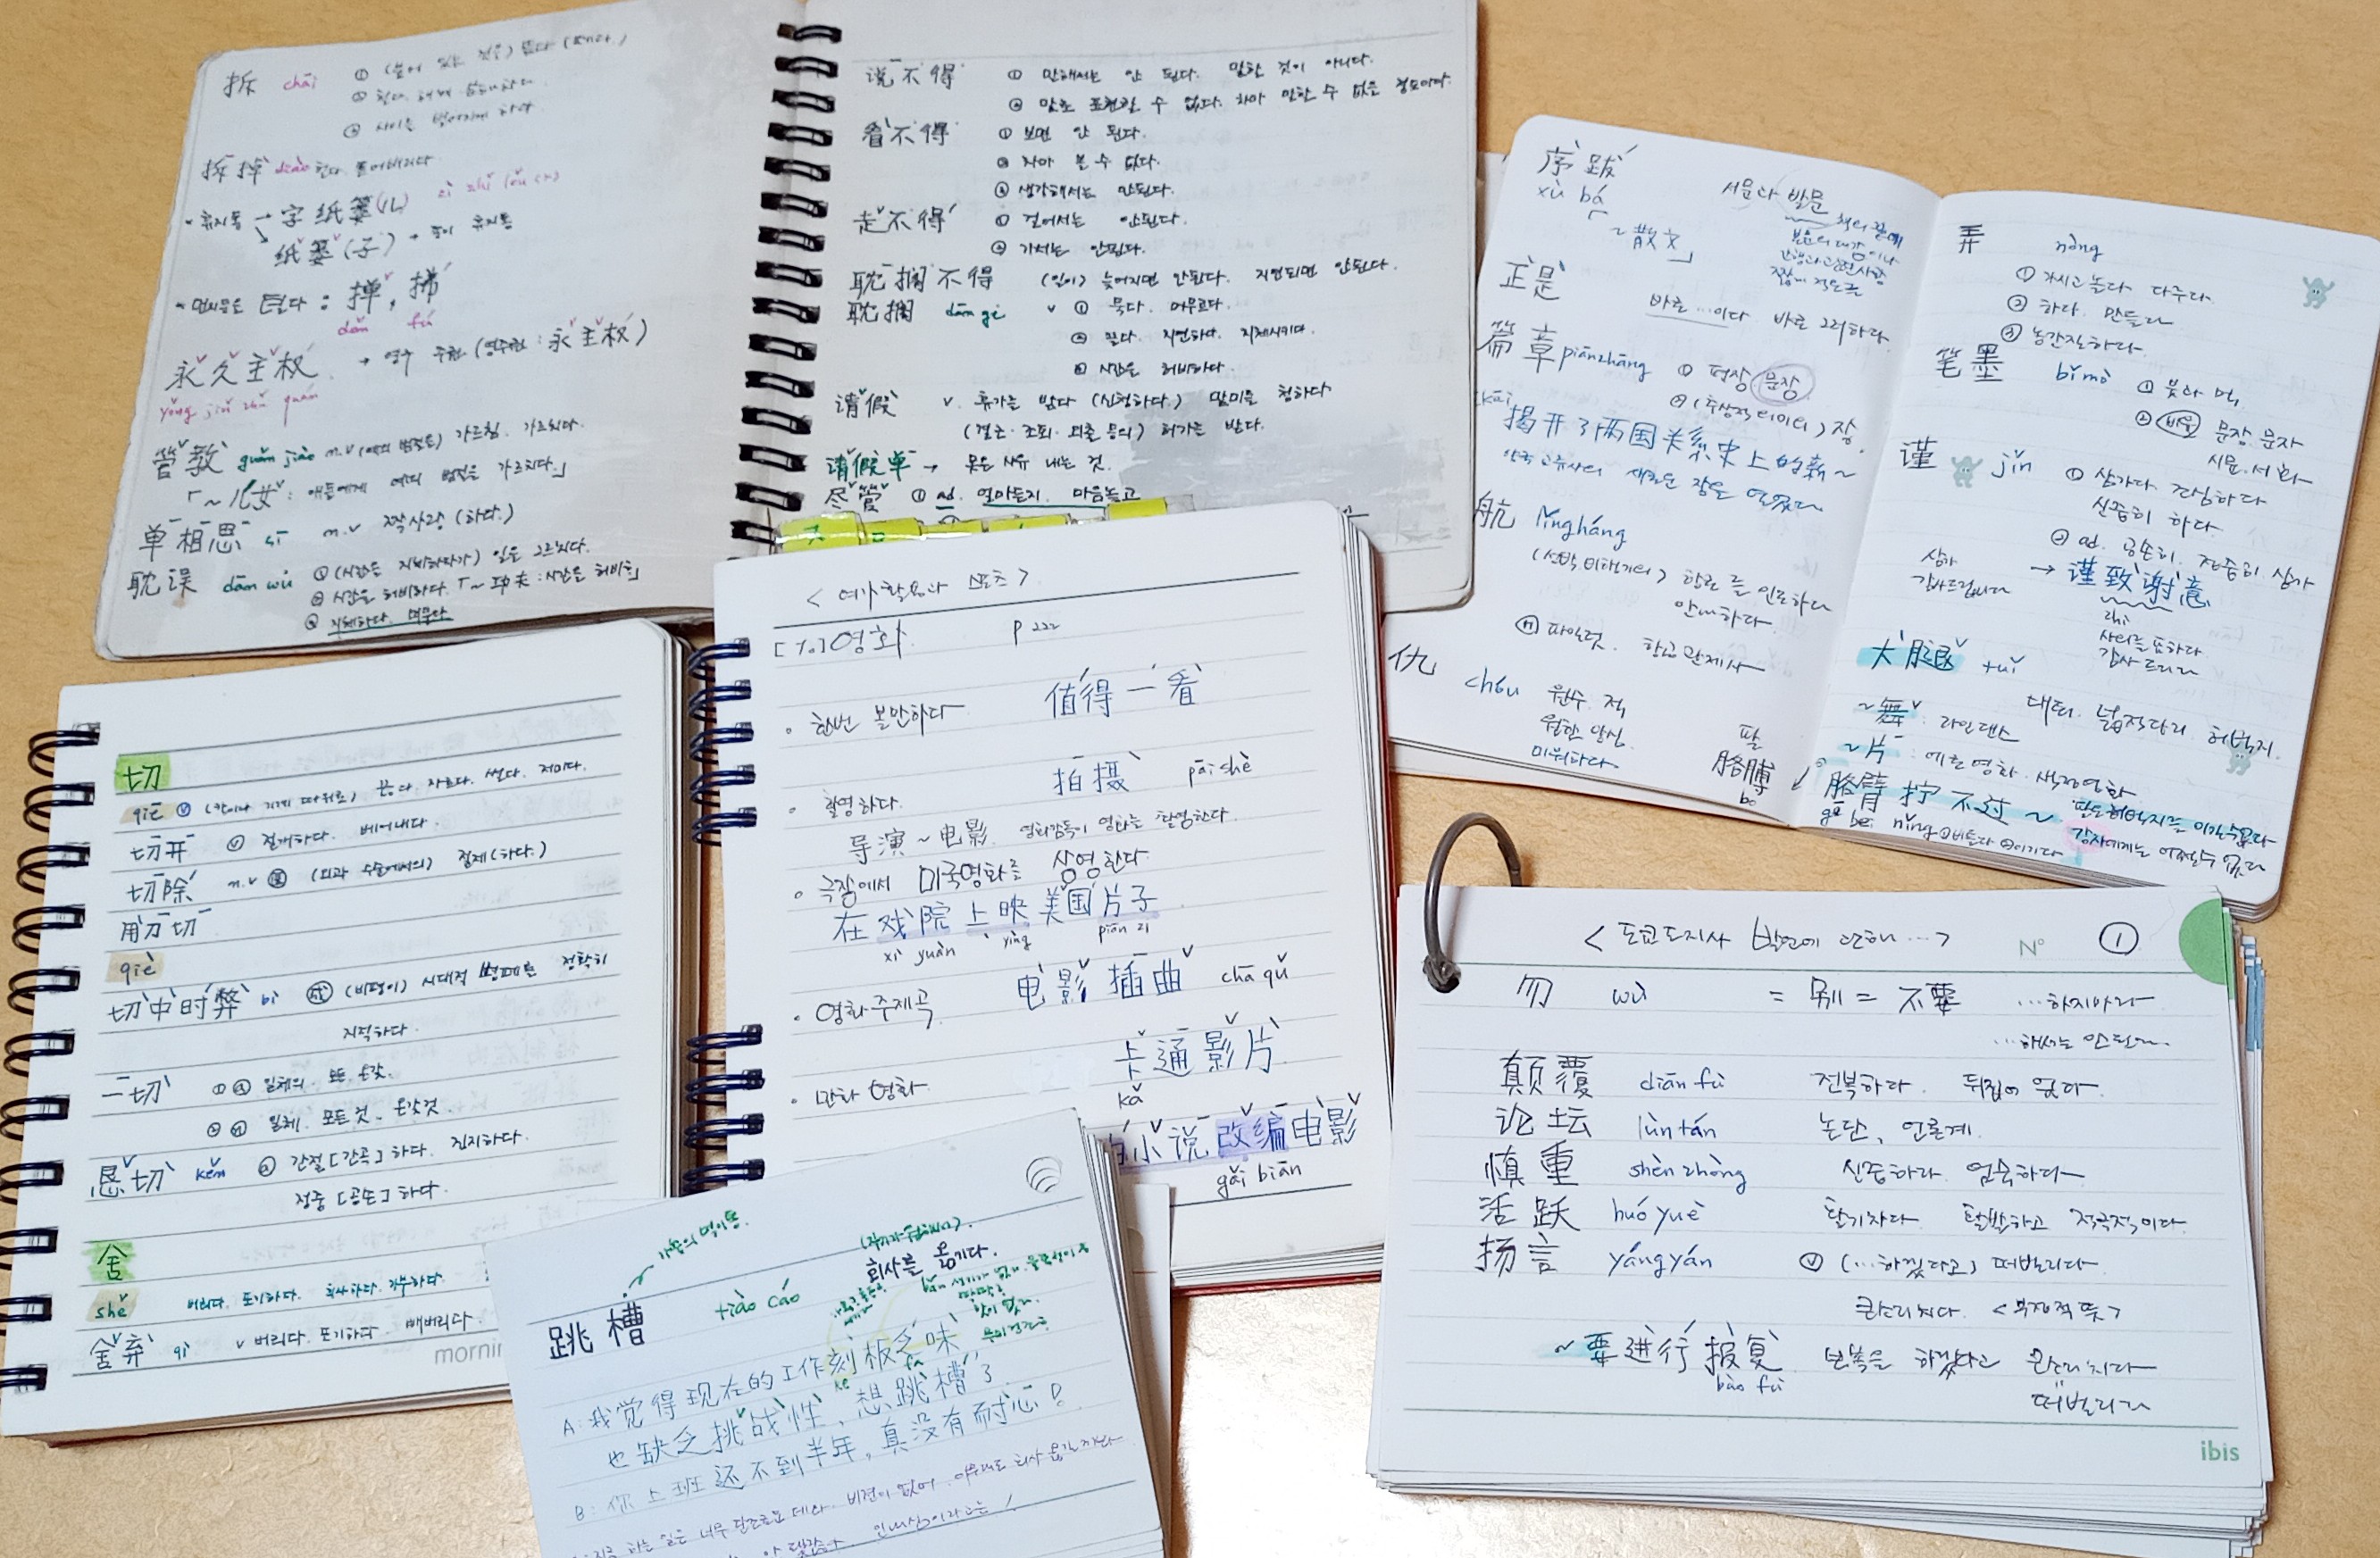 拆 chāi ① (붙어 있는 것을) 뜯다 (떼다.)
② 헐다. 해체
③ 사이를 벌어지게 하다
拆掉 diào 헐다. 뜯어버리다
- 휴지통 → 字纸篓(儿) zì zhǐ lǒu (r)
↘ 纸篓(子) - 종이 휴지통
- 먼지 털다 : 掸, 拂
dǎn fú
永久主权 → 영구 주권 (영주권 : 永主权)
yǒng jiǔ zhǔ quán
管教 guǎn jiào n.v (예의 범절을) 가르침. 가르치다.
「~儿女 : 애들에게 예의 범절을 가르치다.」
单相思 sī n.v 짝사랑 (하다.)
耽误 dān wù ① (시간을 지체하다가) 일을 그르치다.
② 시간을 허비하다. 「~功夫 : 시간을 허비」
③ 지체하다. 머물다
说不得 ① 말해서는 안 된다. 말할 것이 아니다.
② 말로 표현할 수 없다. 차마 말할 수 없을 정도이다.
看不得 ① 보면 안 된다.
② 차마 볼 수 없다.
③ 생각해서는 안된다.
走不得 ① 걸어서는 안된다.
② 가서는 안된다.
耽搁不得 (일이) 늦어지면 안된다. 지연되면 안된다.
耽搁 dān ge v ① 묵다. 머무르다.
② 밀다. 지연하다. 지체시키다.
③ 시간을 허비하다.
请假 v. 휴가를 받다 (신청하다.) 말미를 청하다
(결근·조퇴·외출 등의) 허가를 받다.
请假单 → 못온 사유 내는 것.
尽管 ① ad. 얼마든지. 마음놓고
序跋 서문과 발문
xù bá 책의 끝에
「~散文」 본문의 대강이나
간행과 관련사항
짧게 적은 글
正是 바로 …이다 바로 그러하다.
篇章 piānzhāng ① 편장 문장
② (추상적 의미의) 장
揭开了两国关系史上的新~
양국 교류사의 새로운 장을 열었다
航 lǐngháng
(선박, 비행기의) 항로를 인도하다
안내하다.
파일럿. 항공관제사
仇 chóu 원수. 적
원한. 앙심.
미워하다.
팔
胳膊
bo
弄 nòng
① 가지고 놀다 다루다.
② 하다. 만들다
③ 농간질하다.
笔墨 bǐmò ① 붓과 먹,
② 비유 문장. 문자
시문. 서화
谨 jǐn ① 삼가다 조심하다
신중히 하다.
② ad. 공손히. 정중히 삼가
삼가
감사드립니다 → 谨致谢意
zhì
사의를 표하다
감사 드리다
大腿 tuǐ
대퇴. 넓적다리. 허벅지.
~舞 : 라인댄스
~片 : 에로 영화. 색정영화
胳臂拧不过~ 팔로 허벅지를 이길수없다
gē bei nǐng ① 비틀다 ② 이기다 강자에게는 어쩔수 없다
切
qiē ⓥ (칼이나 기계 따위로) 끊다. 자르다. 썰다. 저미다.
切开 ⓥ 절개하다. 베어내다.
切除 n.v (외과 수술에서의) 절제(하다.)
用刀切
qiè
切中时弊 bì 成 (비평이) 시대적 병폐를 정확히
지적하다.
一切 일체의. 모든 온갖.
일체. 모든 것. 온갖것
恳切 kěn 간절[간곡]하다. 진지하다.
정중[공손]하다.
舍
shě 버리다. 포기하다. 희사하다. 기부하다.
舍弃 qì v 버리다. 포기하다. 빼버리다.
mornin
< 여가활동과 스포츠 >
영화. P 222
• 한번 볼만하다 值得一看
• 촬영하다. 拍摄 pāi shè
导演~电影. 영화감독이 영화를 촬영한다.
• 극장에서 미국영화를 상영한다
在戏院上映美国片子
xì yuàn yìng piān zi
• 영화주제곡 电影插曲 chā qǔ
• 만화 영화 卡通影片
kǎ
小说改编电影
gǎi biān
가축의 먹이통
跳槽 tiào cáo 회사를 옮기다.
A: 我觉得现在的工作刻板乏味
kè fá
也缺乏挑战性, 想跳槽了.
B: 你上班还不到半年, 真没有耐心!
< 도쿄도지사 발언에 관해 … > N° ①
勿 wù = 别 = 不要 …하지마라
…해서는 안된다.
颠覆 diān fù 전복하다. 뒤집어 엎다.
论坛 lùn tán 논단, 언론계.
慎重 shèn zhòng 신중하다. 엄숙하다
活跃 huó yuè 활기차다. 활발하고 적극적이다.
扬言 yángyán ⓥ (…하겠다고) 떠벌리다.
큰소리치다. <부정적 뜻>
~要进行报复 보복을 하겠다고 큰소리치다
bào fù 떠벌리다
ibis